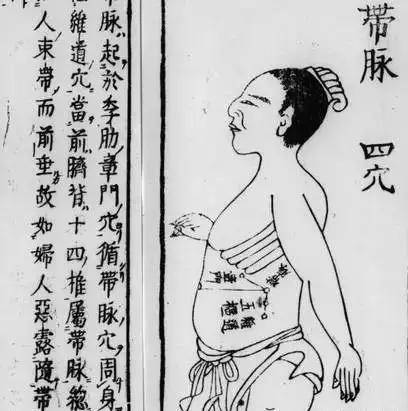 帶脉 四穴
帶脉
章門
維道
五樞
帶脉起於季肋章門穴循帶脉穴周身
維道穴當前臍背十四椎屬帶脉緫
人束帶而前垂故如婦人惡露隨帶